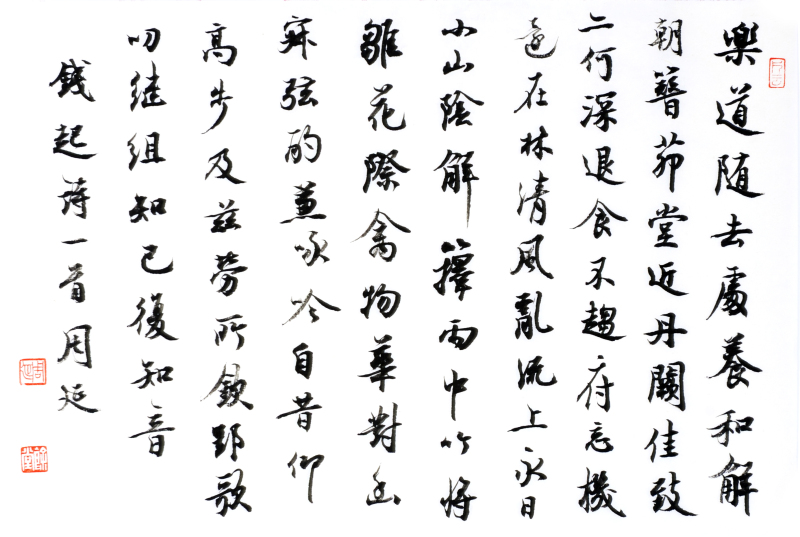 樂道随去處養和解
朝簪茆堂近丹闕佳致
亦何深退食不趨府忘機
還在林清風亂流上永日
小山陰解籜雨中竹將
雛花際禽物華對幽
寂弦酌兼詠吟自昔仰
高步及兹勞所欽郢歌
叨继組知己復知音
錢起詩一首周延